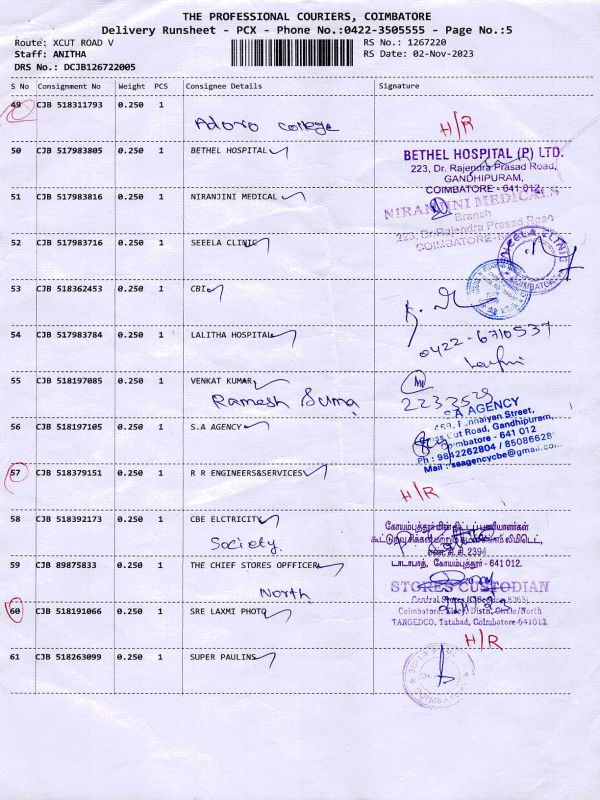 THE PROFESSIONAL COURIERS, COIMBATORE
Delivery Runsheet - PCX - Phone No.:0422-3505555 - Page No.:5
Route: XCUT ROAD V
RS No.: 1267220
Staff: ANITHA
RS Date: 02-Nov-2023
DRS No.: DCJB126722005
S No Consignment No Weight PCS Consignee Details Signature
49 CJB 518311793 0.250 1
Adoro college H/R
50 CJB 517983805 0.250 1 BETHEL HOSPITAL
BETHEL HOSPITAL (P) LTD.
223, Dr. Rajendra Prasad Road,
GANDHIPURAM,
COIMBATORE - 641 012.
51 CJB 517983816 0.250 1 NIRANJINI MEDICAL
NIRANJINI MEDICALS
Branch
223, Dr.Rajendra Prasad Road
52 CJB 517983716 0.250 1 SEEELA CLINIC
53 CJB 518362453 0.250 1 CBI
54 CJB 517983784 0.250 1 LALITHA HOSPITAL
0422-6710537
55 CJB 518197085 0.250 1 VENKAT KUMAR
Ramesh Suma
56 CJB 518197105 0.250 1 S.A AGENCY
S.A AGENCY
Cut Road, Gandhipuram,
Coimbatore - 641 012
Ph : 9842262804 / 85086628
Mail : saagencycbe@gmail.com
57 CJB 518379151 0.250 1 R R ENGINEERS&SERVICES
H/R
58 CJB 518392173 0.250 1 CBE ELCTRICITY
Society.
டாடாபாத், கோயம்புத்தூர் - 641 012.
59 CJB 89875833 0.250 1 THE CHIEF STORES OPFFICER
North
STORES CUSTODIAN
60 CJB 518191066 0.250 1 SRE LAXMI PHOTO
Coimbatore, Elecy. Distn. Circle/North
TANGEDCO, Tatabad, Coimbatore-641012
H/R
61 CJB 518263099 0.250 1 SUPER PAULINS